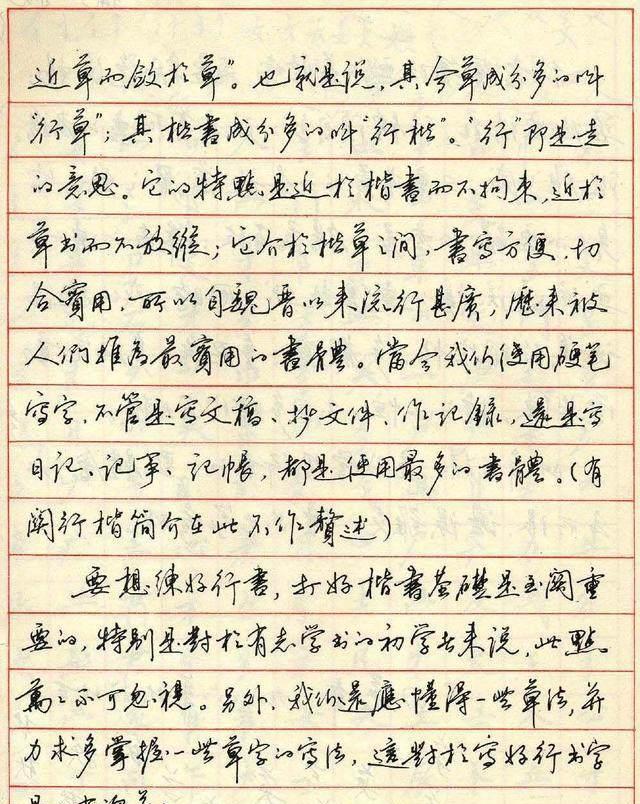 近草而敛於草"。也就是说，其含草成分多的叫
"行草"；其楷書成分多的叫"行楷"。"行"即是走
的意思。它的特點是近於楷書而不拘束，近於
草书而不放縱；它介於楷草之间，書寫方便，切
合實用，所以自魏晋以来流行甚廣，歷来被
人們推為最實用的書體。當今我们使用硬笔
寫字，不管是寫文稿、抄文件、作記錄，還是寫
日记、记事、记帳，都是使用最多的書體。（有
関行楷简介在此不作贅述）
要想練好行書，打好楷書基礎是至関重
要的，特别是對於有志学书的初学者来说，此點
萬万不可忽視。另外，我们還應懂得一些草法，并
力求多掌握一些草字的寫法，這對於寫好行书字